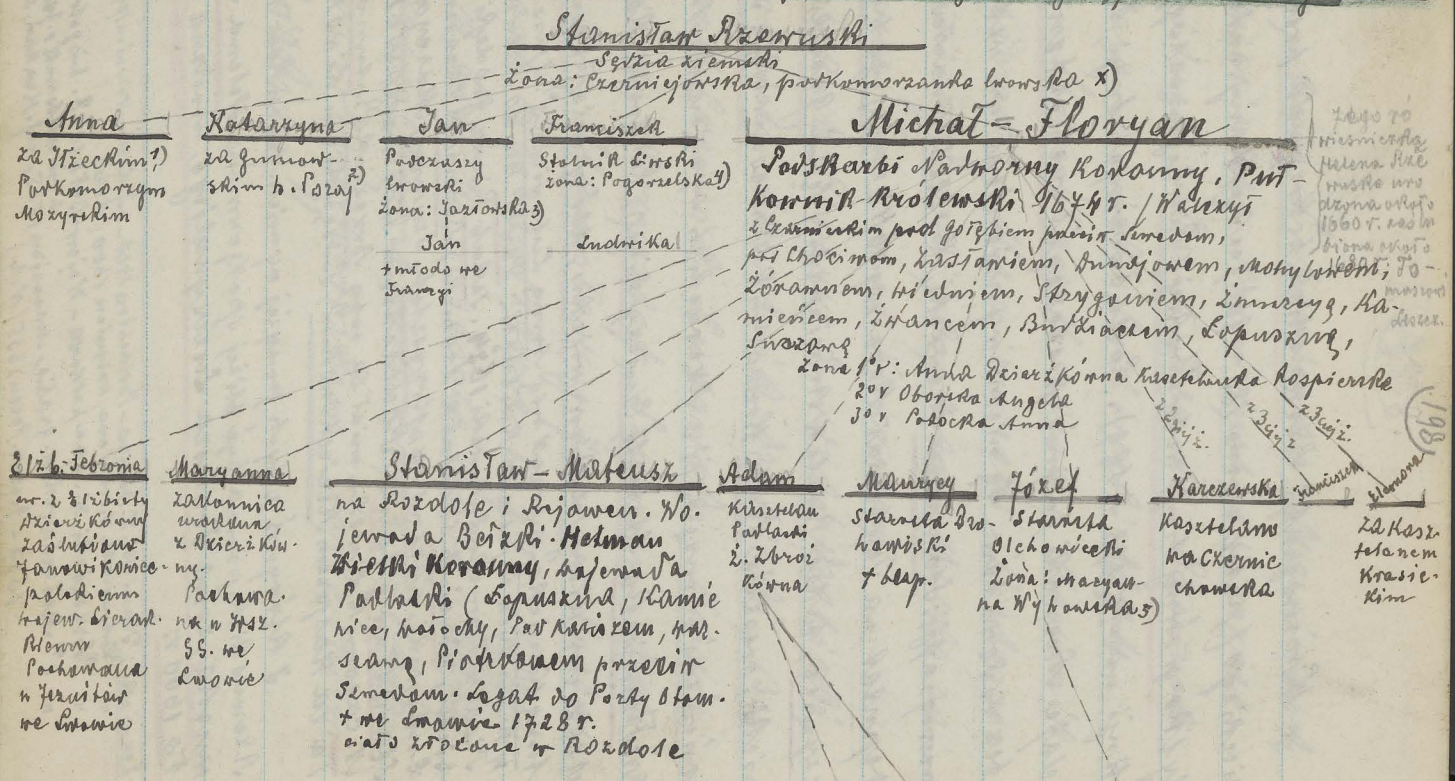 Stanisław Rzewuski
Sędzia ziemski
Żona: Czerniejowska, podkomorzanka lwowska x)
Anna
za Iłżeckim 1)
Podkomorzym
Mozyrskim
Katarzyna
za Żumow-
skim h. Poraj 2)
Jan
Podczaszy
lwowski
Żona: Jazłowska 3)
Jan
+ młodo we
Francyi
Franciszek
Stolnik Liwski
Żona: Pogorzelska 4)
Ludwika
Michał = Floryan
Podskarbi Nadworny Koronny, Puł-
kownik Królewski 1674 r. / Walczył
z Czarnieckim pod Gołębiem przeciw Szwedom,
pod Chocimem, Zasławiem, Dunajowem, Mohylowem,
Żórawnem, Wiedniem, Strygoniem, Żmurcyą, Ka-
mieńcem, Żwańcem, Budziaczem, Łopuszną,
Suczawą
Żona 1º v: Anna Dzierżkówna Kasztelanka Rospierska
2º v Oborska Angela
3º v Potocka Anna
tego ró
wieśniczką
Helena Rze
wuska uro
dzona około
1660 r. zaślu
biona około
1680 r. To-
maszowi
Leszcz.
198
z 2giéj ż.
z 3ciéj ż
z 3ciéj ż.
Elżb.-Febronia
ur. z Elżbiety
Dzierżkówny
zaślubiona
Janowi Koniec-
polskiemu
wojew. Sieradz.
Pochowana
u Jezuitów
we Lwowie
Maryanna
zakonnica
urodzona
z Dzierżków-
ny.
Pochowa-
na u Wsz.
SS. we
Lwowie
Stanisław-Mateusz
na Rozdole i Rejowcu. Wo-
jewoda Bełzki. Hetman
Wielki Koronny, wojewoda
Podlaski (Łopuszna, Kamie
niec, Wołochy, Pod Kaliszem, War-
szawą, Piotrkowem przeciw
Szwedom. Legat do Porty Otom.
+ we Lwowie 1728 r.
ciało złożone w Rozdole
Adam
Kasztelan
Podlaski
ż. Zbroż
kówna
Maurycy
Starosta Bro-
hawiski
+ bezp.
Józef
Starosta
Olchowiecki
Żona: Maryan-
na Wyhowska 5)
Karczewska
Kasztelano
wa Czernie
chowska
Franciszek
Eleonora
za Kasz-
telanem
Krasic-
kim